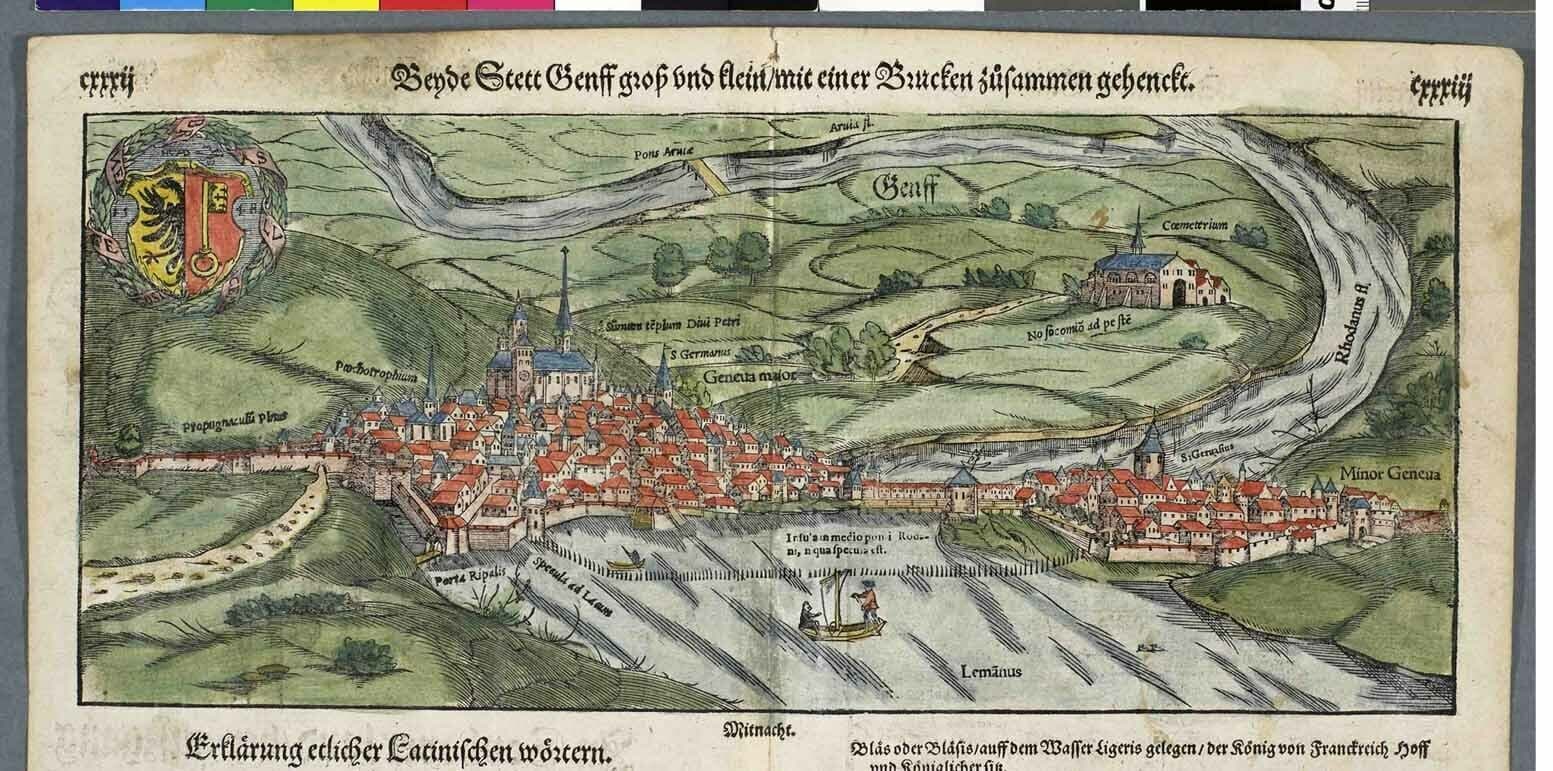 cxxxij
Beyde Stett Genff groß vnd klein/mit einer Brucken zůsammen gehenckt.
cxxxiij
Aruia fl.
Pons Aruiæ
Genff
Cœmeterium
Rhodanus fl.
Nosocomiũ ad pestẽ
Sũmum tẽplum Diui Petri
S Germanus
Geneua maior
Ptochotrophium
Propugnaculũ Pinus
S. Geruasius
Minor Geneua
Insula in medio pontis Roda-
ni, in qua specula est.
Porta Ripalis
Specula ad Lacum
Lemãnus
Mitnacht.
Erklärung etlicher Latinischen wörtern.
Bläs oder Bläsis/auff dem Wasser Ligeris gelegen/der König von Franckreich Hoff
vnd Königlicher sitz.